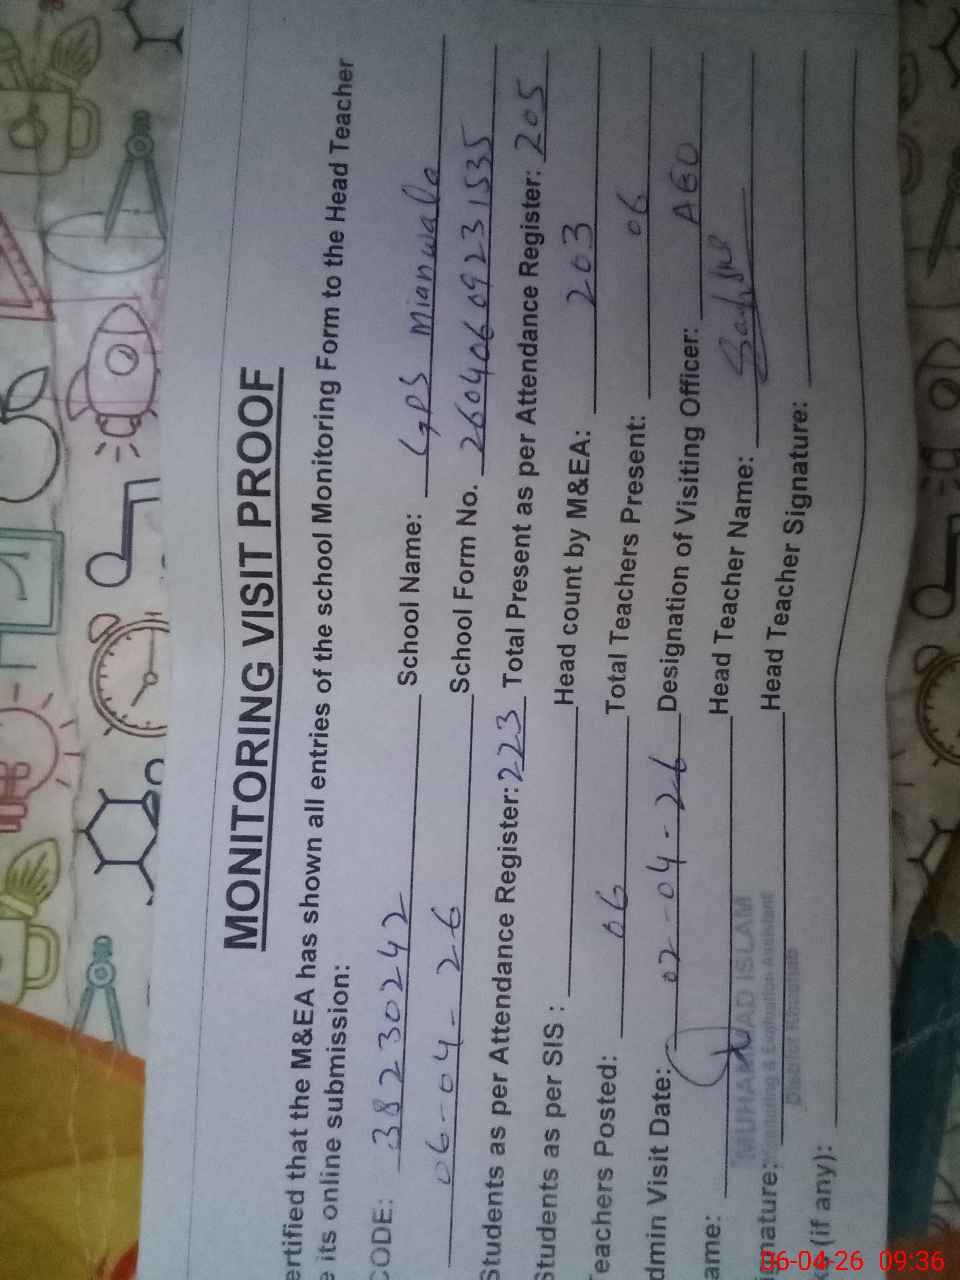 MONITORING VISIT PROOF
ertified that the M&EA has shown all entries of the school Monitoring Form to the Head Teacher
e its online submission:
CODE: 38230242 School Name: GPS Mianwala
06-04-26 School Form No. 26040609231535
Students as per Attendance Register: 223 Total Present as per Attendance Register: 205
Students as per SIS : Head count by M&EA: 203
Teachers Posted: 06 Total Teachers Present: 06
dmin Visit Date: 02-04-26 Designation of Visiting Officer: AEO
ame: Head Teacher Name:
MUHAMMAD ISLAM
Monitoring & Evaluation Assistant
District Khushab
ignature: Head Teacher Signature:
(if any):
06-04-26 09:36